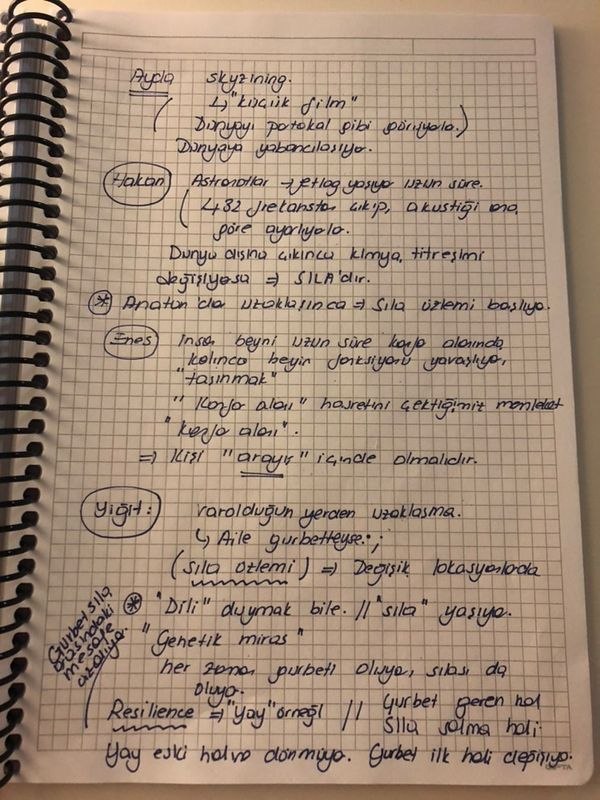 Ayda skyzining.
↳ "küçük film"
(Dünyayı portakal gibi görüyorlar.)
Dünyaya yabancılaşıyo.
Hakan Astronotlar → jetlag yaşıyo uzun süre.
(432 frekanstan çıkıp, akustiği ona
göre ayarlıyorlar.
Dünya dışına çıkınca kimya, titreşimi
değişiyosa ⇒ SILA'dır.
* Anavatan'dan uzaklaşınca ⇒ Sıla özlemi başlıyo.
Enes insan beyni uzun süre konfor alanında
kalınca beyin fonksiyonu yavaşlıyo,
"taşınmak"
"Konfor alanı" hasretini çektiğimiz memleket
"konfor alanı".
⇒ Kişi "arayış" içinde olmalıdır.
Yiğit: varolduğun yerden uzaklaşma.
↳ Aile gurbetteyse;
(sıla özlemi) ⇒ Değişik lokasyonlarda
* "Dili" duymak bile. // "sıla" yaşıyo.
Gurbet sıla
arasındaki
mesafe
azalıyo.
"Genetik miras"
her zaman gurbeti oluyo, sılası da
oluyo.
Resilience ⇒ "Yay" örneği // Gurbet geren hal
Sıla salma hali.
Yay eski haline dönmüyo. Gurbet ilk hali değişiyo.